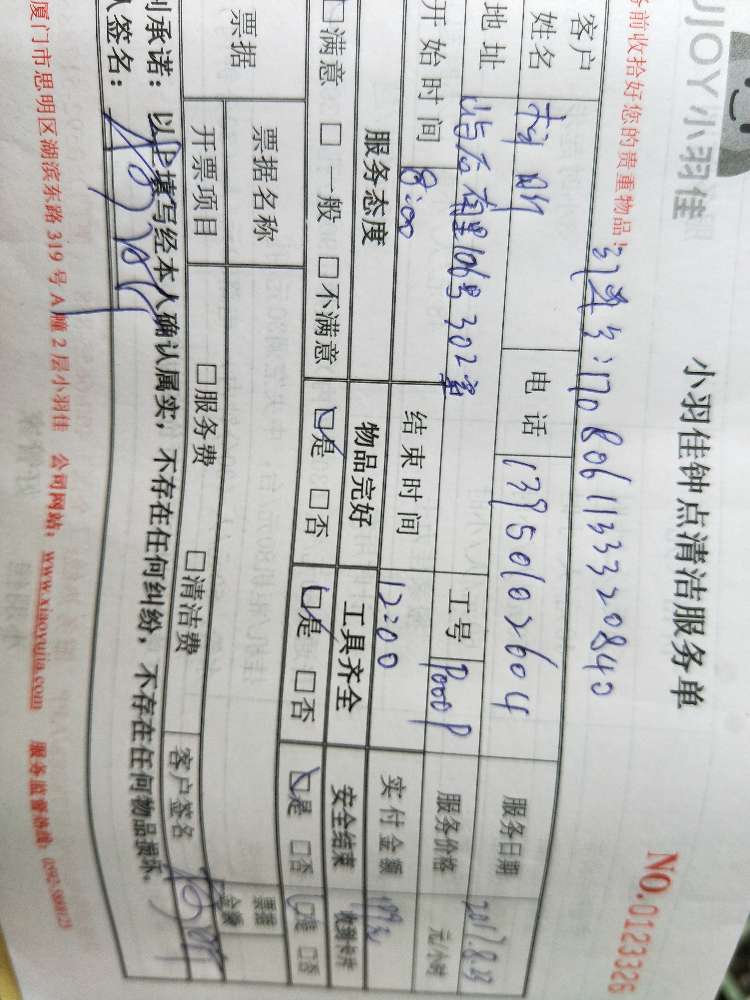 UJOY小羽佳
小羽佳钟点清洁服务单
NO.0123326
务前收拾好您的贵重物品!
订单号:170806113332 0840
客户姓名 电话 13950102604 服务日期
地址 岳后南里106号302室 工号 服务价格 元/小时
开始时间 8:00 结束时间 12:00 实付金额
服务态度 物品完好 工具齐全 安全结束 收到卡片
□满意 □一般 □不满意 □是 □否 □是 □否 □是 □否 □是 □否
票据 票据名称 票据金额
开票项目 □服务费 □清洁费 客户签名
承诺:以上填写经本人确认属实,不存在任何纠纷,不存在任何物品损坏。
人签名:
厦门市思明区湖滨东路319号A幢2层小羽佳 公司网站:www.xiaoyujia.com 服务监督热线: